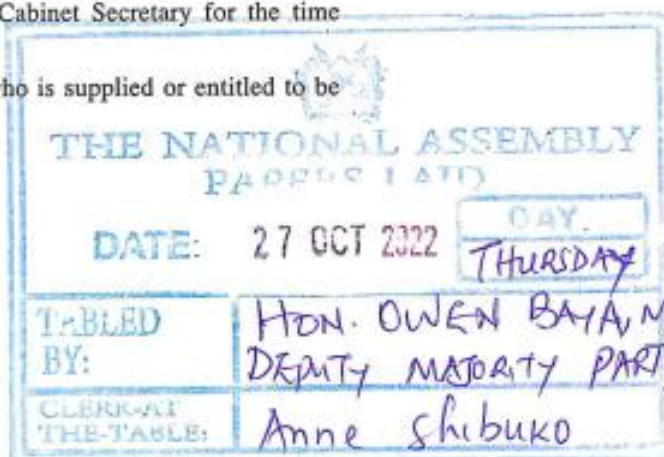 Cabinet Secretary for the time
who is supplied or entitled to be
THE NATIONAL ASSEMBLY
PAPERS LAID
DATE: 27 OCT 2022
DAY.
THURSDAY
TABLED BY:
HON. OWEN BAYA, N
DEPUTY MAJORITY PART
CLERK-AT THE-TABLE:
Anne Shibuko